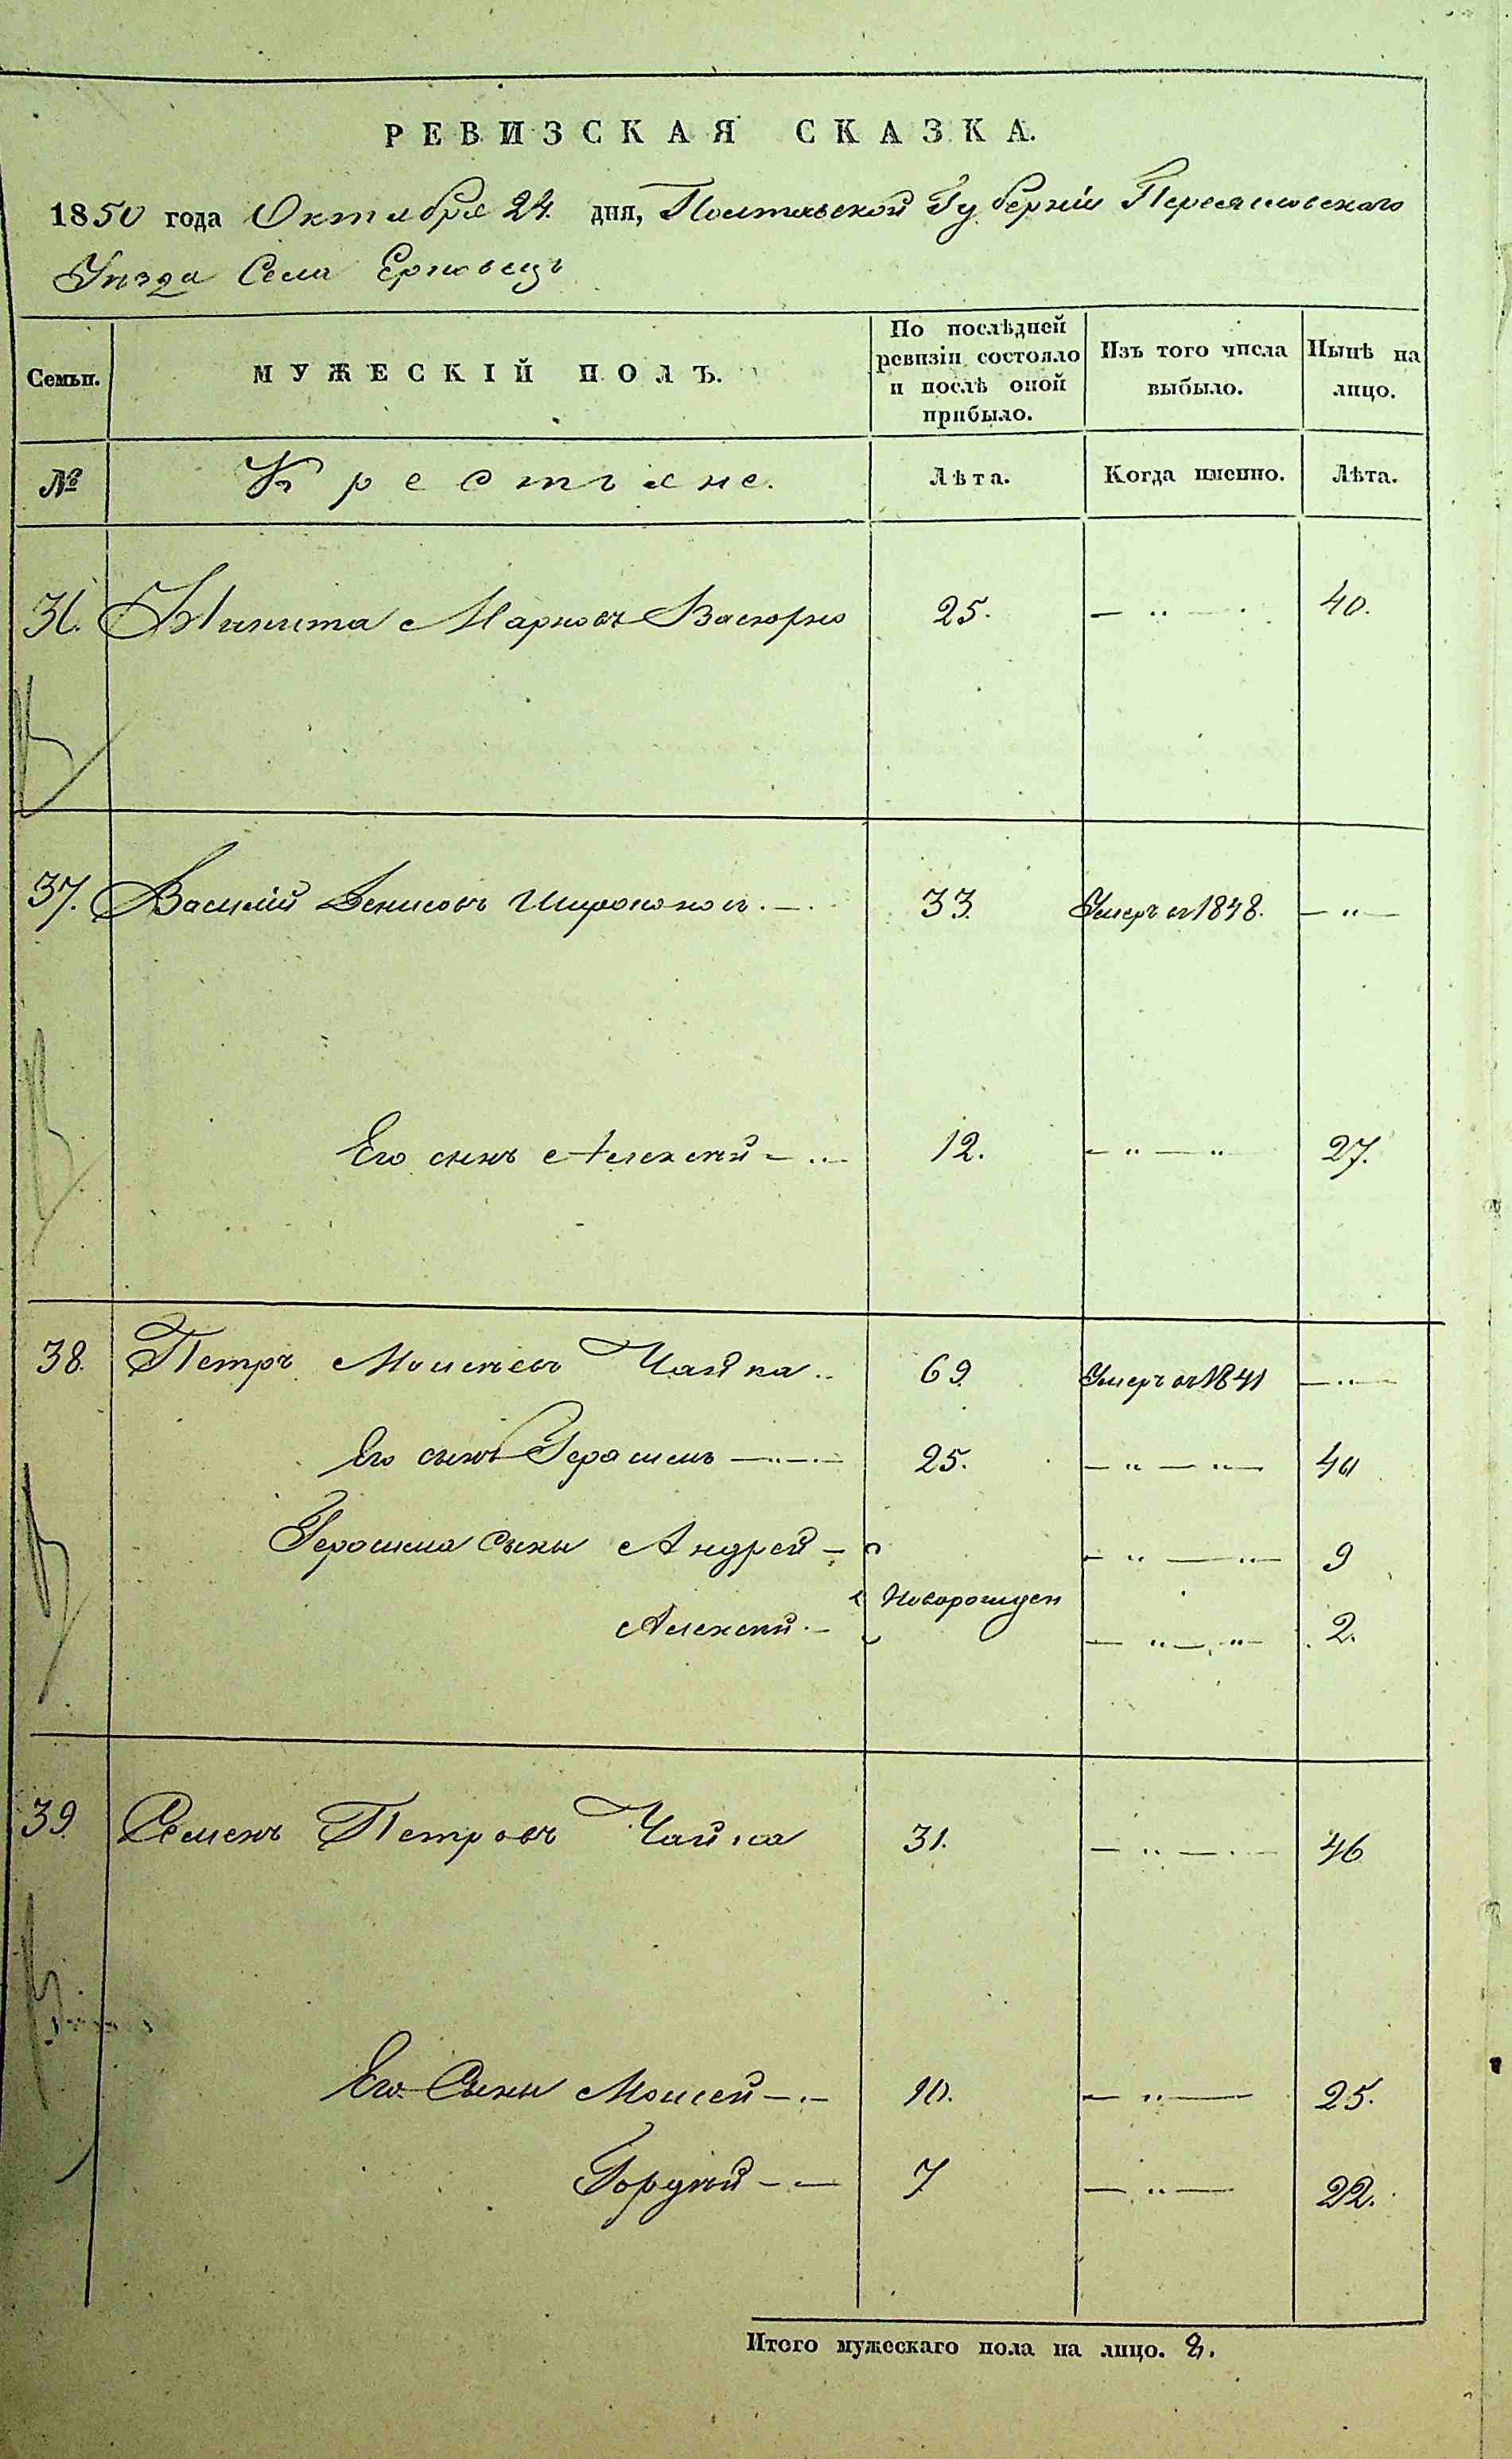 РЕВИЗСКАЯ СКАЗКА.
1850 года Октября 24. дня, Полтавской Губерніи Переяславского
Уезда Села Ерковець
Семьи. МУЖЕСКІЙ ПОЛЪ. По послѣдней ревизіи состояло и послѣ оной прибыло. Изъ того числа выбыло. Нынѣ на лицо.
№ Крестьяне. Лѣта. Когда именно. Лѣта.
36. Никита Марковъ 25. 40.
37. Василій Денисовъ Широконос. 33. Умеръ въ 1848.
Его сынъ Алексѣй 12. 27.
38. Петръ Моисѣевъ Чайка 69. Умеръ въ 1841
Его сынъ Герасимъ 25. 40
Герасима Сыны Андрей 9
Новорожден
Алексѣй 2.
39. Семенъ Петровъ Чайка 31. 46
Его Сыны Моисей 10. 25.
Гордѣй 7 22.
Итого мужескаго пола на лицо. 8.